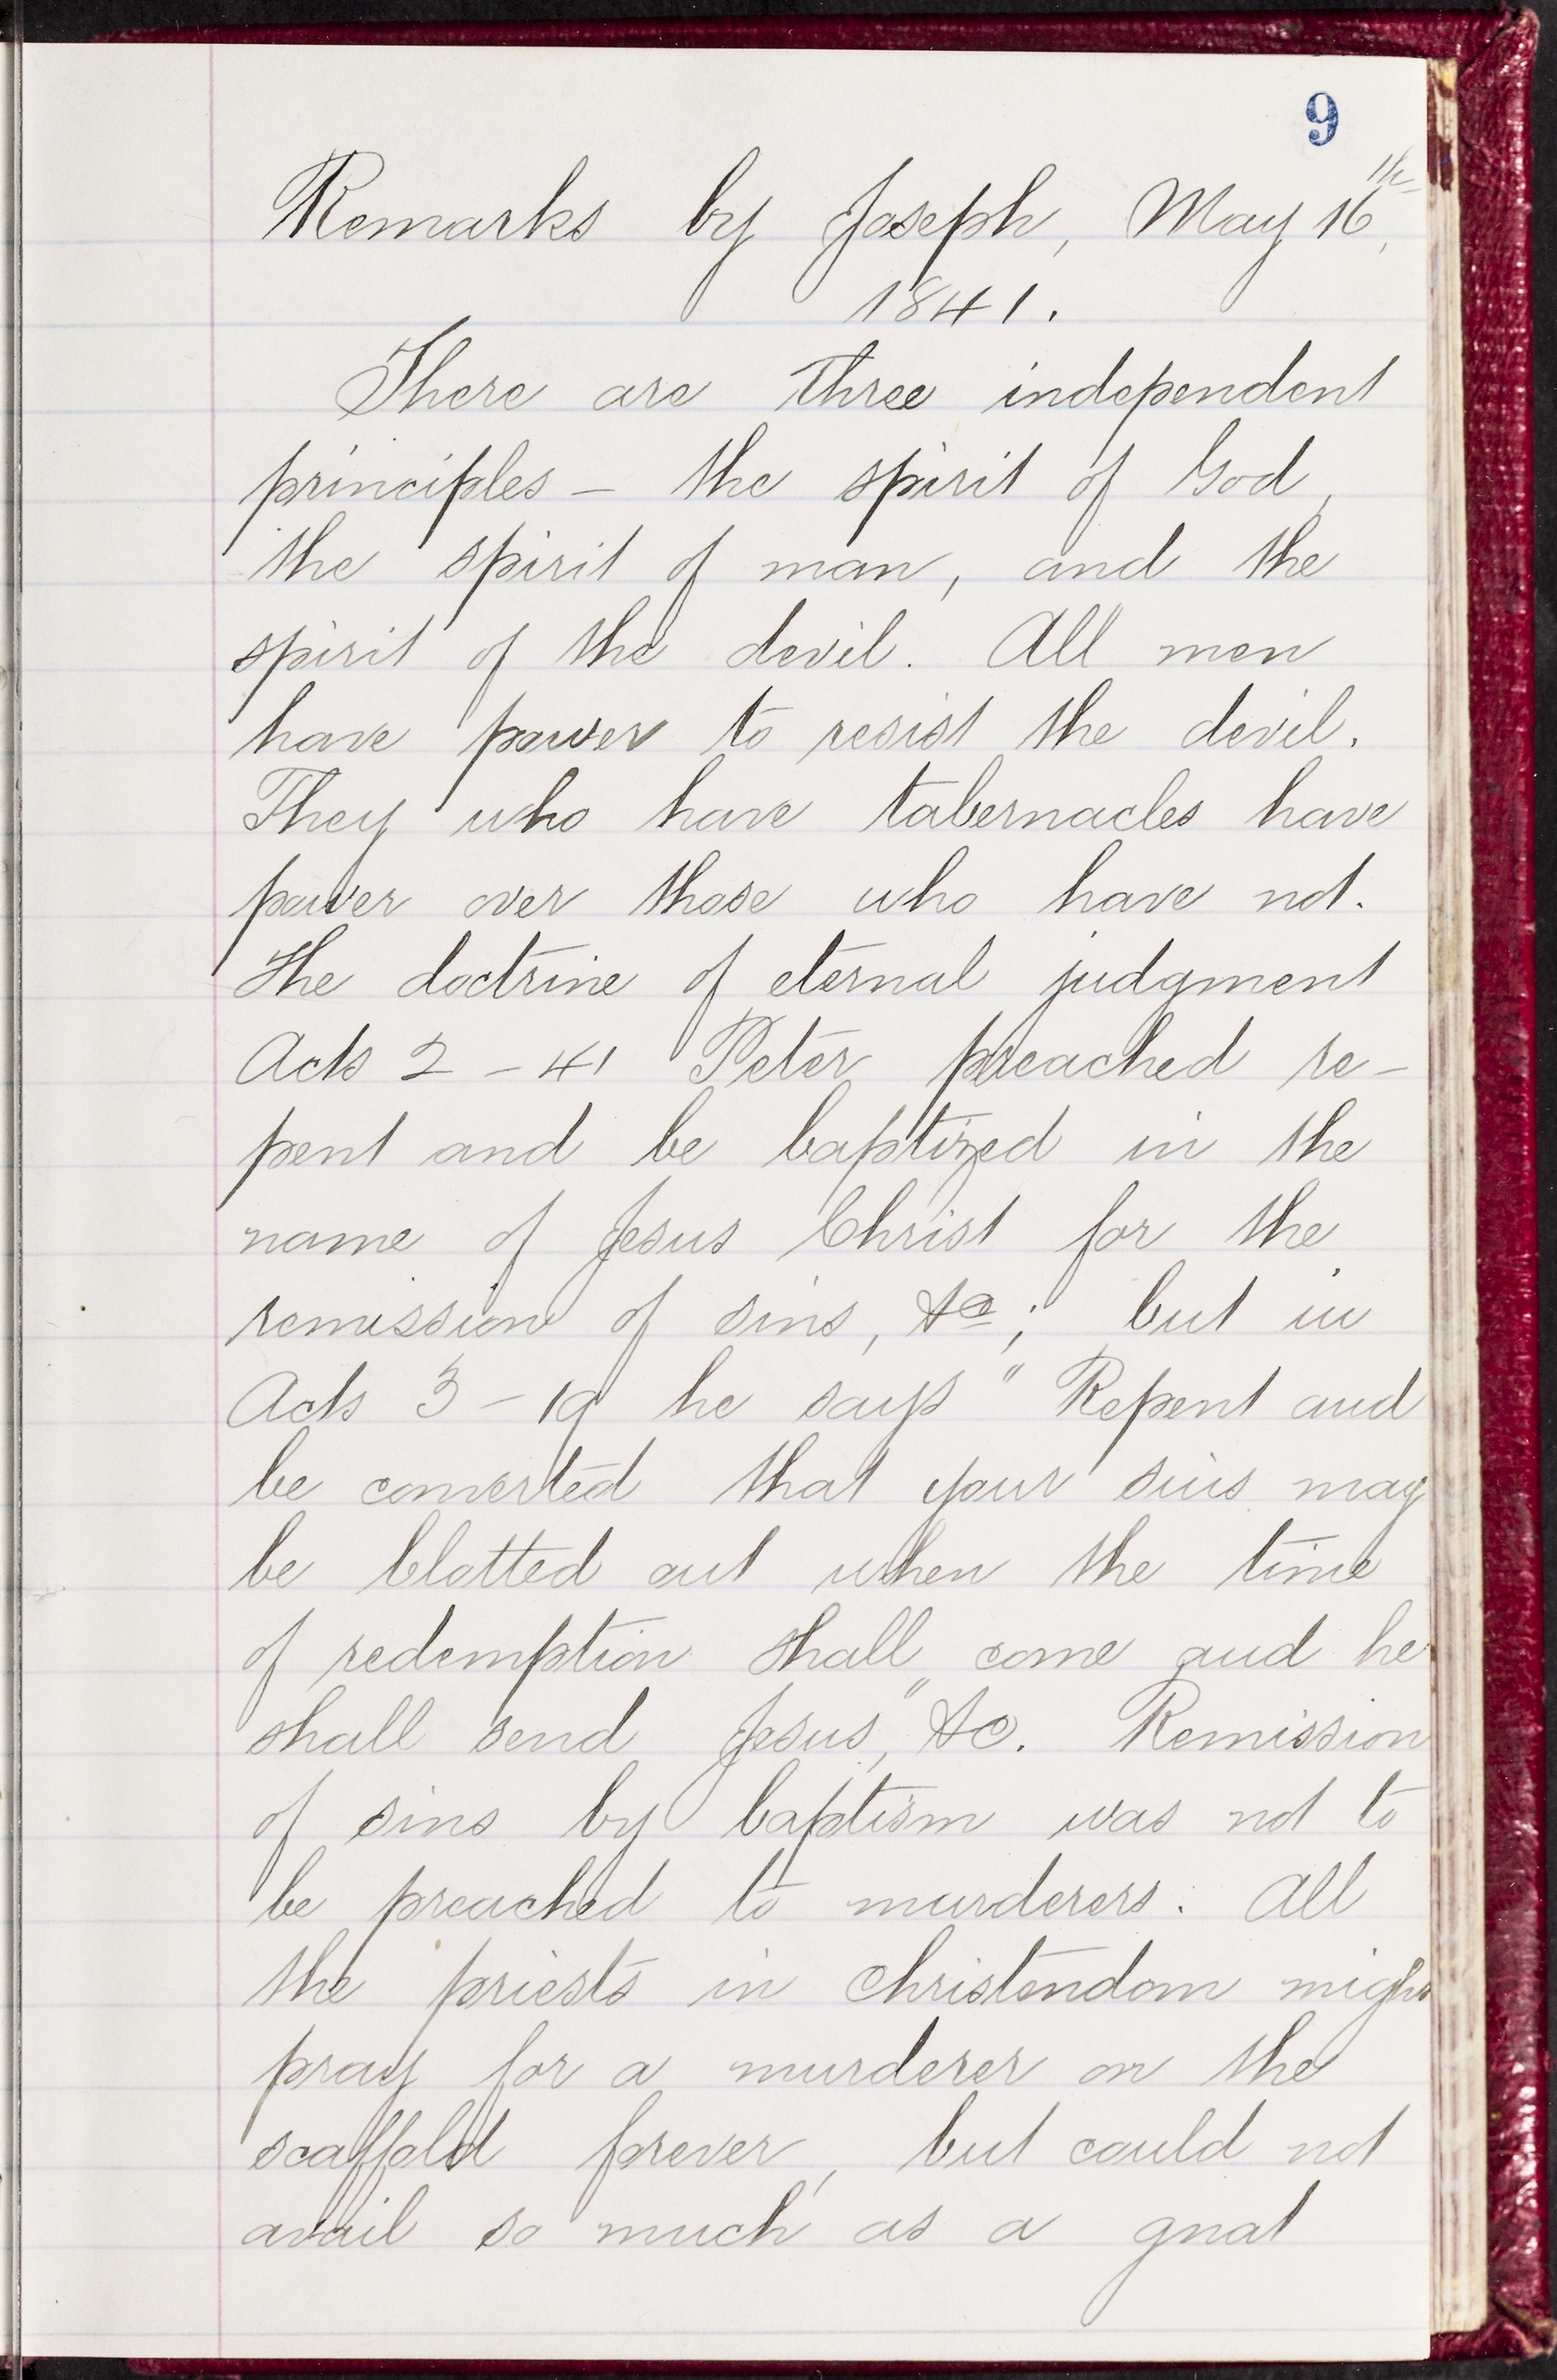 9
Remarks by Joseph, May 16th,
1841.
There are three independent
principles – the spirit of God,
the spirit of man, and the
spirit of the devil. All men
have power to resist the devil.
They who have tabernacles have
power over those who have not.
The doctrine of eternal judgment
Acts 2 – 41 Peter preached re-
pent and be baptized in the
name of Jesus Christ for the
remission of sins, &c; but in
Acts 3 – 19 he says "Repent and
be converted that your sins may
be blotted out when the time
of redemption shall come and he
shall send Jesus," &c. Remission
of sins by baptism was not to
be preached to murderers. All
the priests in christendom might
pray for a murderer on the
scaffold forever, but could not
avail so much as a gnat